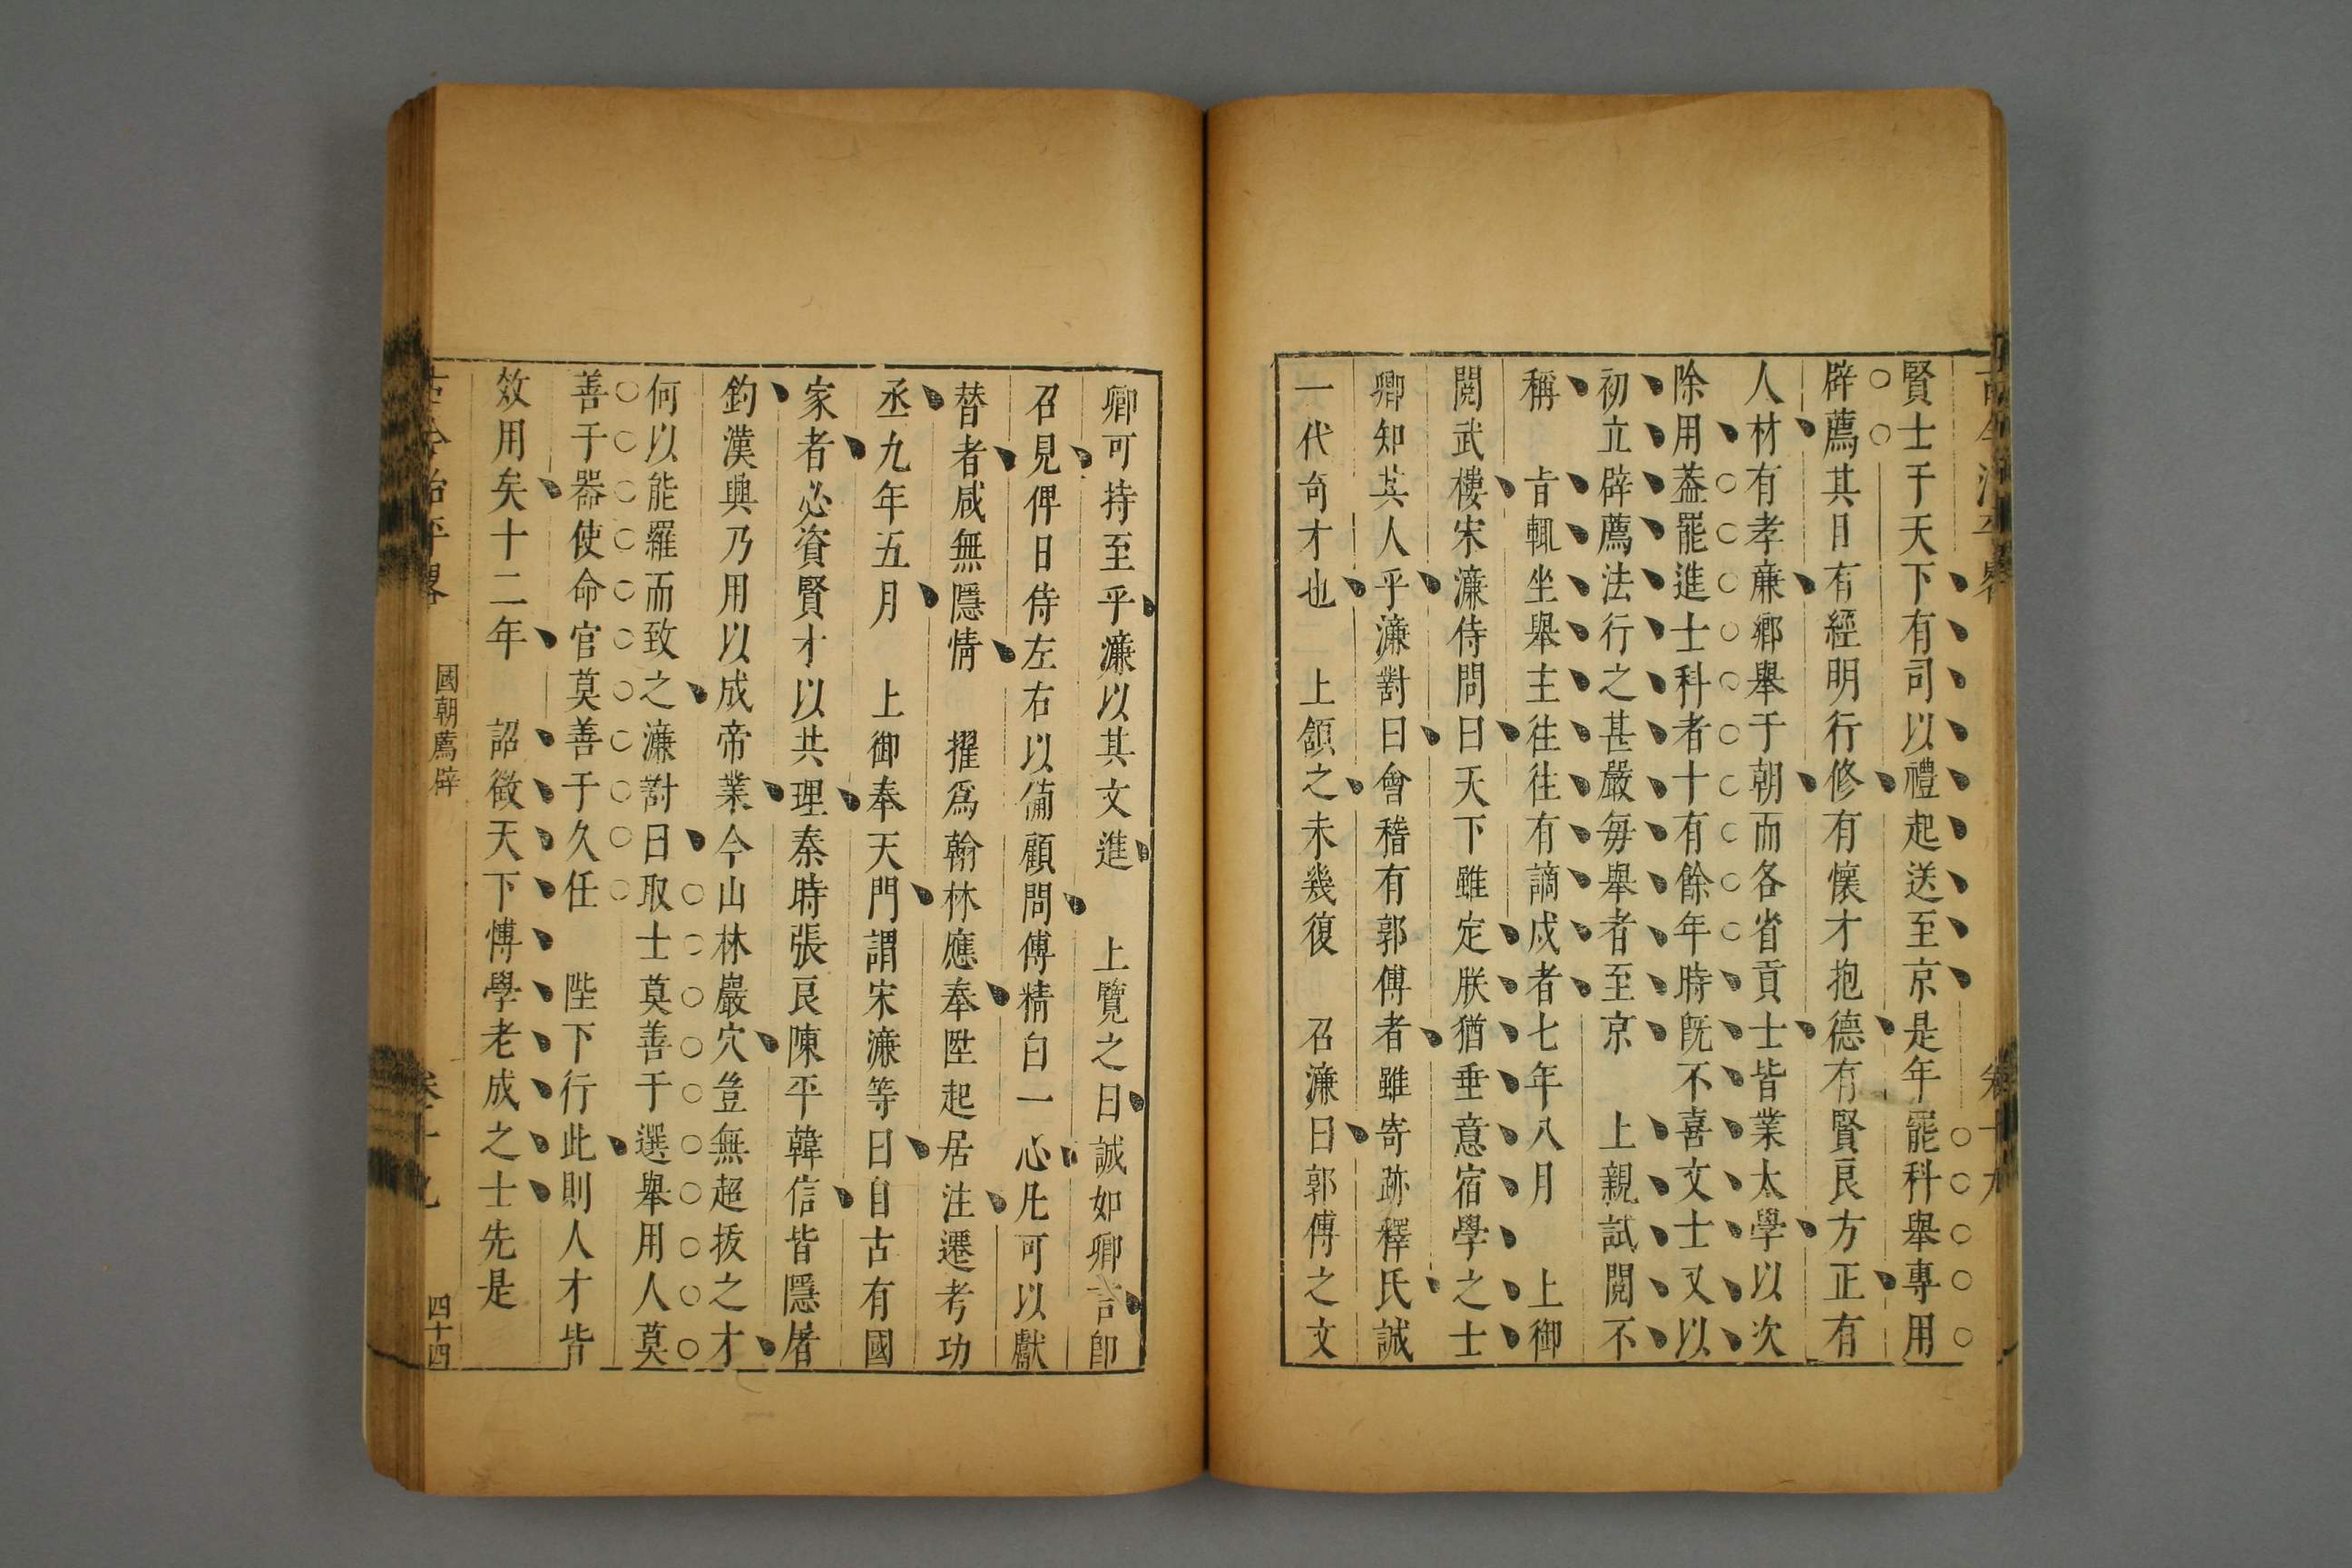 賢士于天下有司以禮起送至京是年罷科舉專用
辟薦其目有經明行修有懷才抱德有賢良方正有
人材有孝廉鄉舉于朝而各省貢士皆業太學以次
除用葢罷進士科者十有餘年時旣不喜文士又以
初立辟薦法行之甚嚴每舉者至京　上親試閱不
稱　旨輒坐舉主往往有謫戍者七年八月　上御
閱武樓宋濂侍問曰天下雖定朕猶垂意宿學之士
卿知其人乎濂對曰會稽有郭傅者雖寄跡釋氏誠
一代奇才也　上頷之未幾復　召濂曰郭傅之文
卿可持至乎濂以其文進　上覽之曰誠如卿言卽
召見俾日侍左右以備顧問傅精白一心凡可以獻
替者咸無隱情　擢爲翰林應奉陞起居注遷考功
丞九年五月　上御奉天門謂宋濂等曰自古有國
家者必資賢才以共理秦時張良陳平韓信皆隱屠
釣漢興乃用以成帝業今山林巖穴豈無超拔之才
何以能羅而致之濂對曰取士莫善于選舉用人莫
善于器使命官莫善于久任　陛下行此則人才皆
效用矣十二年　詔徵天下愽學老成之士先是
古今治平畧　國朝薦辟　卷十九　四十四